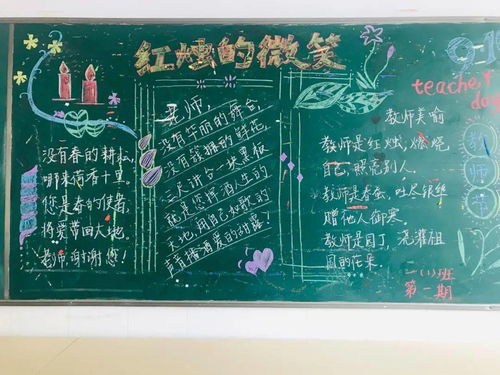 红烛的微笑
没有春的耕耘,
哪来荷香十里。
您是春的使者,
将爱带回大地
老师,谢谢您!
老师,
没有华丽的舞台,
没有簇拥的鲜花,
三尺讲台一块黑板
就是您挥洒人生的
天地,用自己如歌的
声音播洒爱的甘露!
9·10
teacher
day
教师美喻
教师是红烛,燃烧
自己,照亮别人.
教师是春蚕,吐尽银丝
赠他人御寒
教师是园丁,浇灌祖
国的花朵
教
师
节
一(1)班
第一期